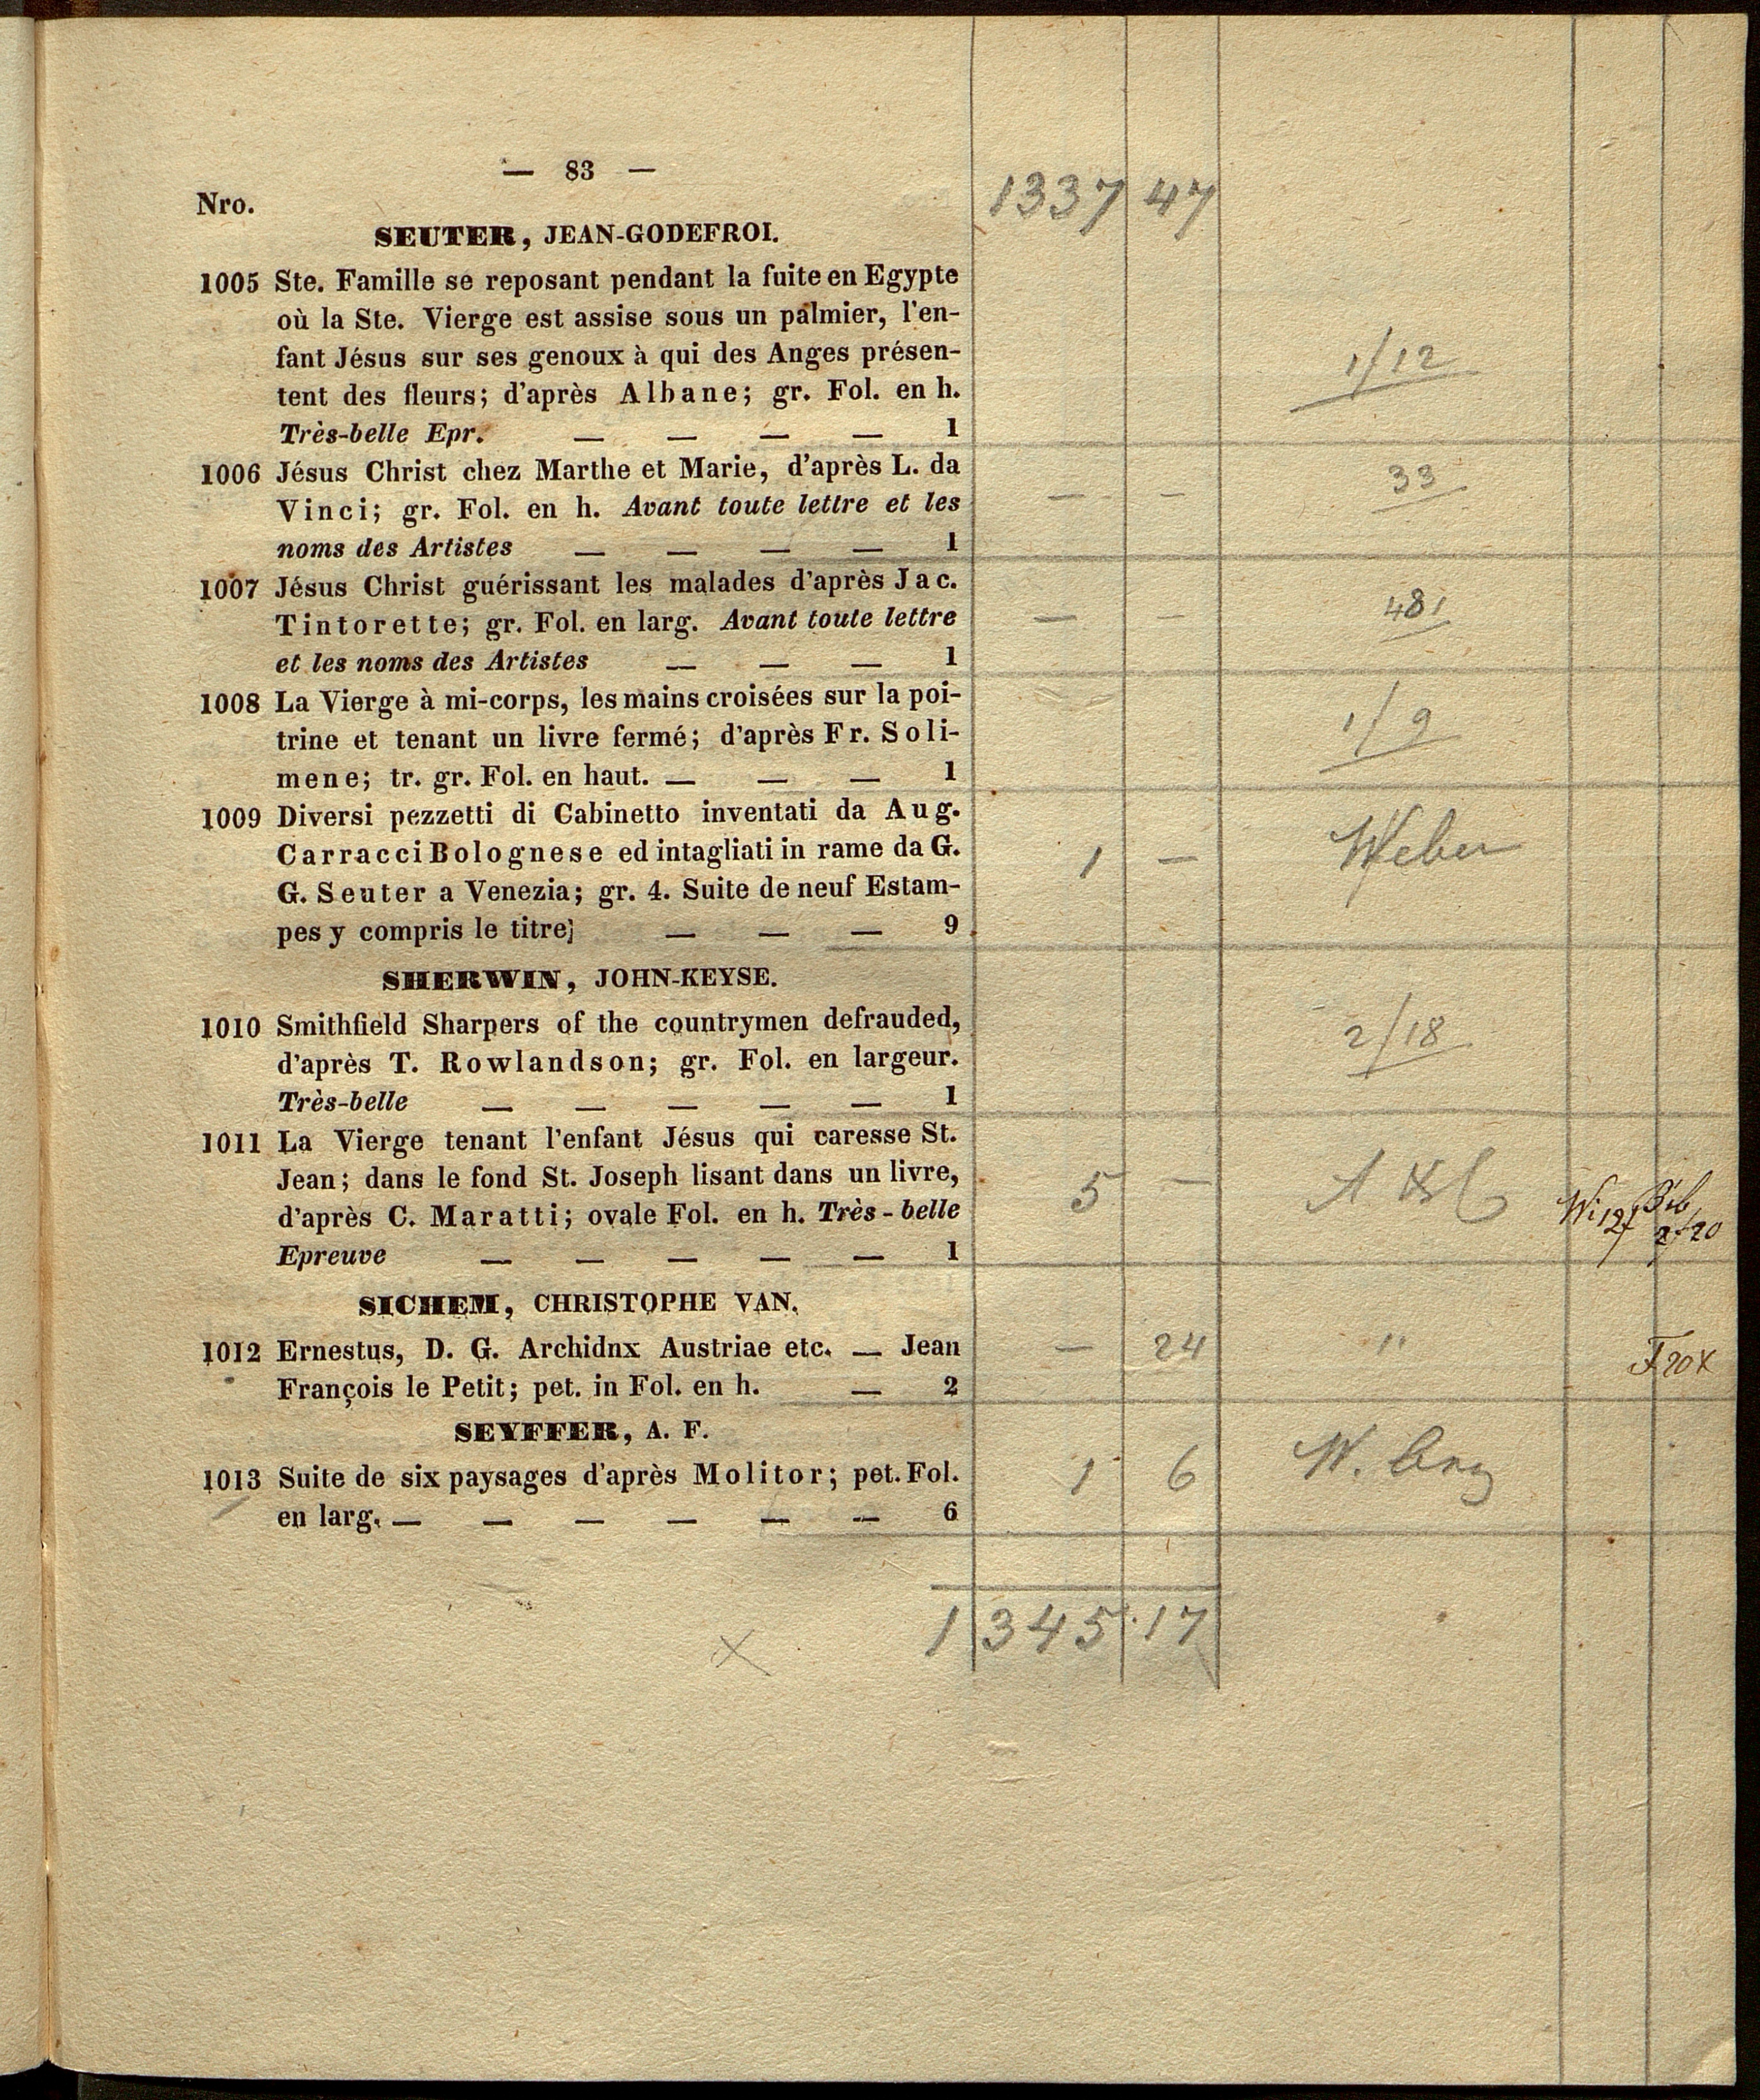 — 83 —
1337 47
Nro.
SEUTER, JEAN-GODEFROI.
1005 Ste. Famille se reposant pendant la fuite en Egypte
où la Ste. Vierge est assise sous un palmier, l'en-
fant Jésus sur ses genoux à qui des Anges présen-
tent des fleurs; d'après Albane; gr. Fol. en h.
Très-belle Epr. — — — — 1
1/12
1006 Jésus Christ chez Marthe et Marie, d'après L. da
Vinci; gr. Fol. en h. Avant toute lettre et les
noms des Artistes — — — — 1
— — 33
1007 Jésus Christ guérissant les malades d'après Jac.
Tintorette; gr. Fol. en larg. Avant toute lettre
et les noms des Artistes — — — 1
— — 48
1008 La Vierge à mi-corps, les mains croisées sur la poi-
trine et tenant un livre fermé; d'après Fr. Soli-
mene; tr. gr. Fol. en haut. — — — 1
1/9
1009 Diversi pezzetti di Cabinetto inventati da Aug.
Carracci Bolognese ed intagliati in rame da G.
G. Seuter a Venezia; gr. 4. Suite de neuf Estam-
pes y compris le titre; — — — 9
1 — Weber
SHERWIN, JOHN-KEYSE.
1010 Smithfield Sharpers of the countrymen defrauded,
d'après T. Rowlandson; gr. Fol. en largeur.
Très-belle — — — — — 1
2/18
1011 La Vierge tenant l'enfant Jésus qui caresse St.
Jean; dans le fond St. Joseph lisant dans un livre,
d'après C. Maratti; ovale Fol. en h. Très-belle
Epreuve — — — — — 1
5 —
SICHEM, CHRISTOPHE VAN.
1012 Ernestus, D. G. Archidnx Austriae etc. — Jean
François le Petit; pet. in Fol. en h. — 2
— 24 "
SEYFFER, A. F.
1013 Suite de six paysages d'après Molitor; pet. Fol.
en larg. — — — — — — 6
1 6 W.
1345.17